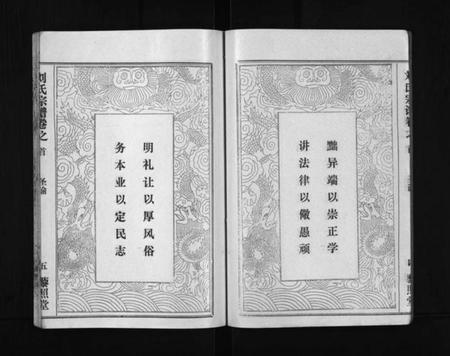 刘氏宗谱卷之
首
圣谕
五
藜照堂
黜异端以崇正学
讲法律以儆愚顽
明礼让以厚风俗
务本业以定民志